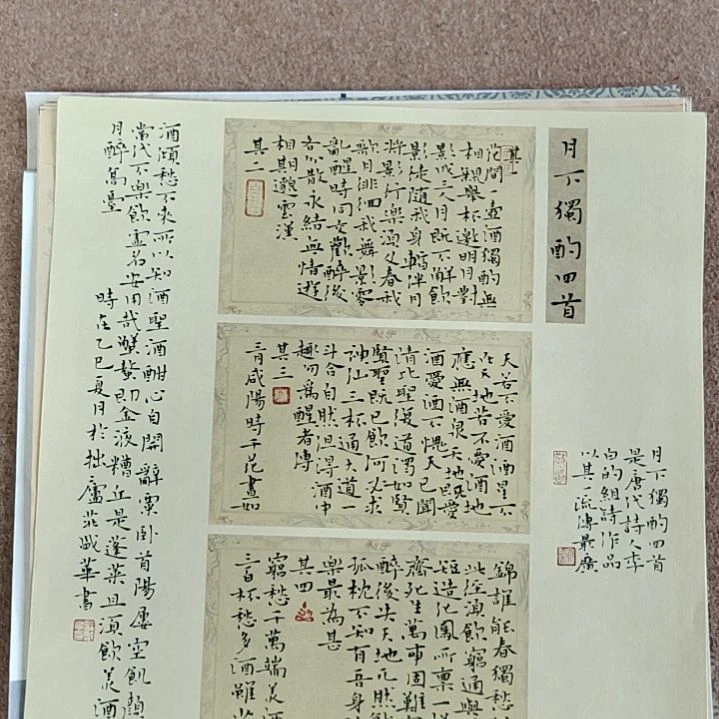 月下獨酌四首
其一
花間一壺酒獨酌無
相親舉杯邀明月對
影成三人月既不解飲
影徒隨我身暫伴月
將影行樂須及春我
歌月徘徊我舞影零
亂醒時同交歡醉後
各分散永結無情遊
相期邈雲漢
其二
天若不愛酒酒星不
在天地若不愛酒地
應無酒泉天地既愛
酒愛酒不愧天已聞
清比聖復道濁如賢
賢聖既已飲何必求
神仙三杯通大道一
斗合自然但得酒中
趣勿為醒者傳
其三
三月咸陽時千花晝如
錦誰能春獨愁
此徑須飲窮通與
短造化夙所稟一
齊死生萬事固難
醉後失天地兀然就
孤枕不知有吾身
樂最為甚
其四
窮愁千萬端美酒
三百杯愁多酒雖少
酒傾愁不來所以知酒聖酒酣心自開辭粟臥首陽屢空飢顏
當代不樂飲虛名安用哉蟹螯即金液糟丘是蓬萊且須飲美酒
月醉高臺
時在乙巳夏月於拙廬莊盛華書
月下獨酌四首
是唐代詩人李
白的組詩作品
以其一流傳最廣